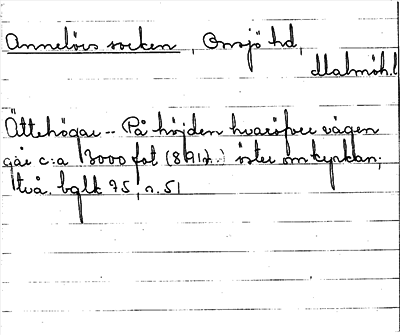 Annelövs socken, Onsjö hd,
Malmöh.l
Ättehögar -- På höjden hvaröfver vägen
går c:a 3000 fot (891 m.) öster om kyrkan;
två. bglk 95, n. 51